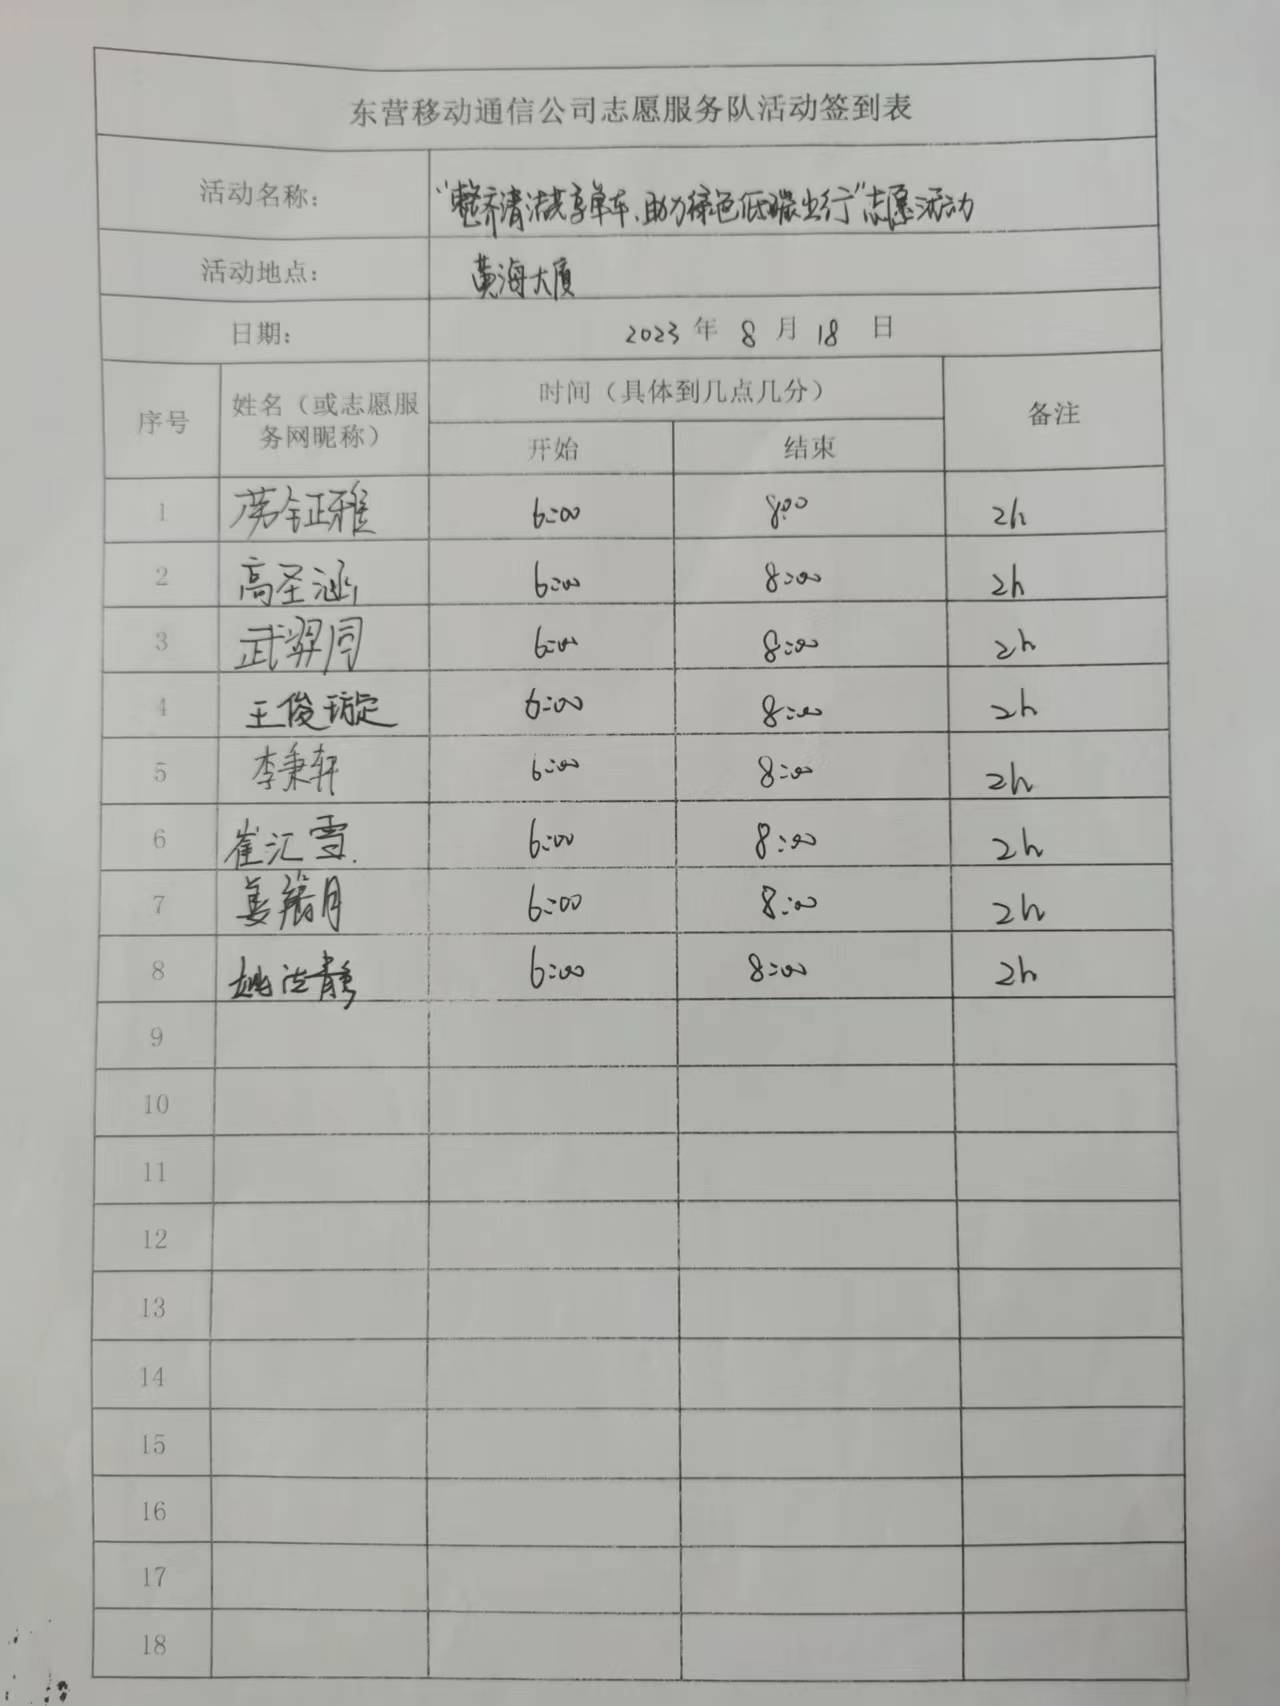 东营移动通信公司志愿服务队活动签到表
活动名称： “整齐清洁共享单车、助力绿色低碳出行”志愿活动
活动地点： 黄海大厦
日期： 2023 年 8 月 18 日
序号 姓名（或志愿服务网昵称） 时间（具体到几点几分） 备注
开始 结束
1 6:00 8:00 2h
2 高圣涵 6:00 8:00 2h
3 武羿同 6:00 8:00 2h
4 王俊璇 6:00 8:00 2h
5 李秉轩 6:00 8:00 2h
6 崔汇雪 6:00 8:00 2h
7 6:00 8:00 2h
8 6:00 8:00 2h
9
10
11
12
13
14
15
16
17
18